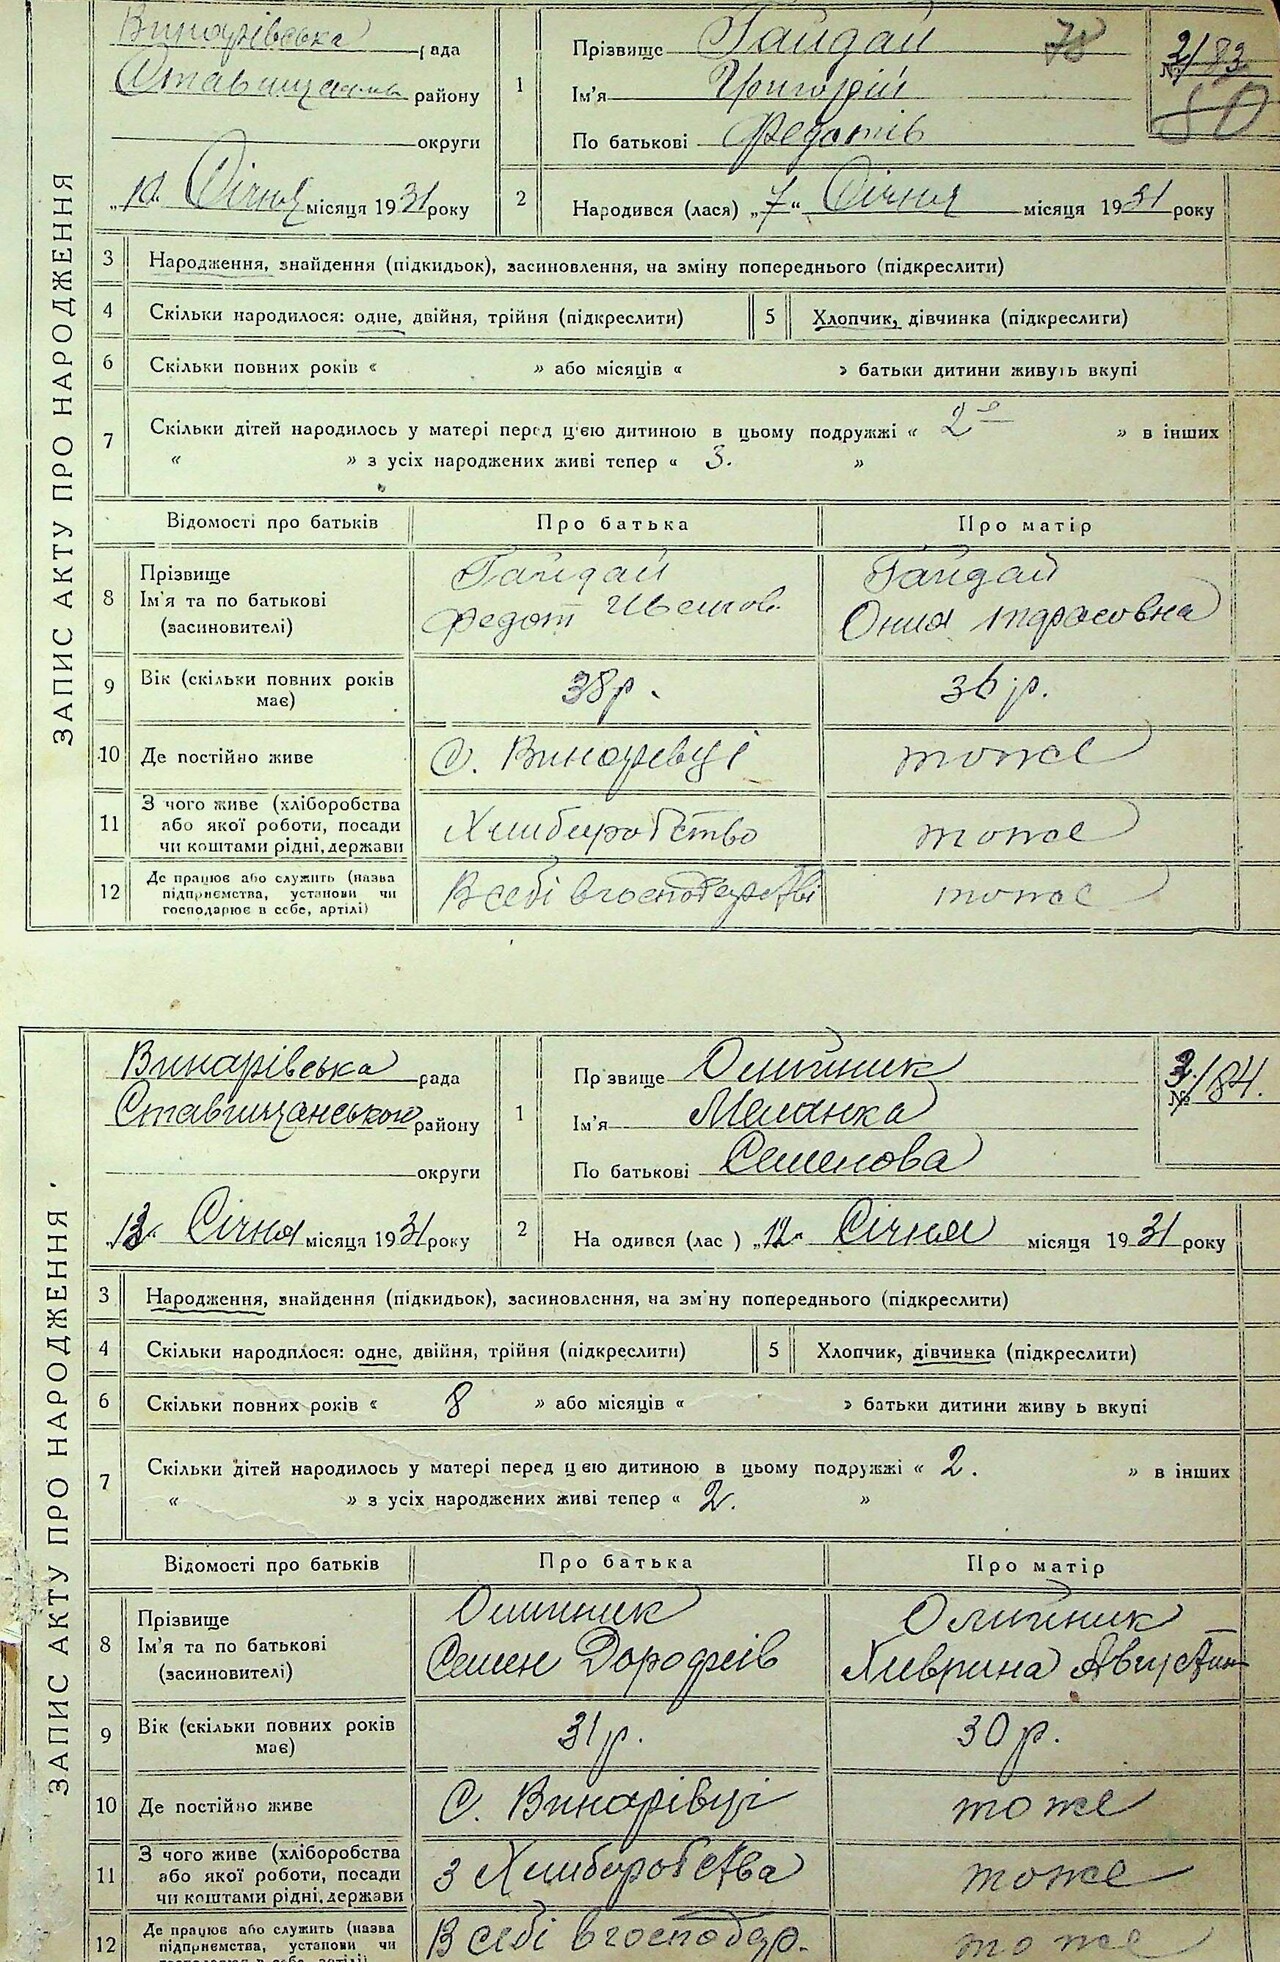 ЗАПИС АКТУ ПРО НАРОДЖЕННЯ
Винарівська рада
Ставищанськ району
округи
„10“ Січня місяця 1931 року
1 Прізвище Гайдай
Ім'я Григорій
По батькові Федотів
2/83
2 Народився (лася) „7“ Січня місяця 1931 року
3 Народження, знайдення (підкидьок), засиновлення, на зміну попереднього (підкреслити)
4 Скільки народилося: одне, двійня, трійня (підкреслити) 5 Хлопчик, дівчинка (підкреслити)
6 Скільки повних років « » або місяців « » батьки дитини живуть вкупі
7 Скільки дітей народилось у матері перед цією дитиною в цьому подружжі « 2 » в інших
« » з усіх народжених живі тепер « 3. »
Відомості про батьків Про батька Про матір
8 Прізвище Гайдай Гайдай
Ім'я та по батькові Федот Тарасовна
(засиновителі)
9 Вік (скільки повних років має) 38 р. 36 р.
10 Де постійно живе С. Винаревці тоже
11 З чого живе (хліборобства або якої роботи, посади чи коштами рідні, держави Хлиборобство тоже
12 Де працює або служить (назва підприємства, установи чи господарює в себе, артілі) В себі в господарстві тоже
ЗАПИС АКТУ ПРО НАРОДЖЕННЯ
Винарівська рада
Ставищанського району
округи
„13“ Січня місяця 1931 року
1 Пр звище Олийник
Ім'я Меланка
По батькові Семенова
№ 3/84.
2 На одився (лас ) „12“ Січня місяця 1931 року
3 Народження, знайдення (підкидьок), засиновлення, на зм'ну попереднього (підкреслити)
4 Скільки народилося: одне, двійня, трійня (підкреслити) 5 Хлопчик, дівчинка (підкреслити)
6 Скільки повних років « 8 » або місяців « » батьки дитини живу ь вкупі
7 Скільки дітей народилось у матері перед цією дитиною в цьому подружжі « 2. » в інших
« » з усіх народжених живі тепер « 2. »
Відомості про батьків Про батька Про матір
8 Прізвище Олийник Олийник
Ім'я та по батькові Семен Дорофеів Хиврина Августин
(засиновителі)
9 Вік (скільки повних років має) 31 р. 30 р.
10 Де постійно живе С. Винарівці тоже
11 З чого живе (хліборобства або якої роботи, посади чи коштами рідні, держави З Хлиборобства тоже
12 Де працює або служить (назва підприємства, установи чи В себі в господар. тоже